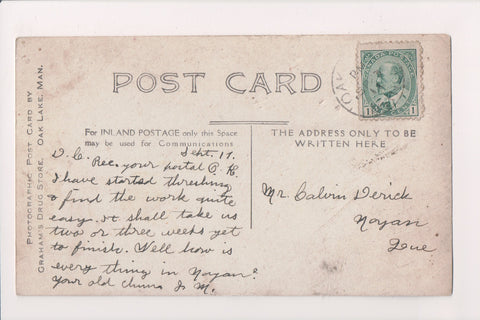 POST CARD
PHOTOGRAPHIC POST CARD BY
GRAHAM'S DRUG STORE, OAK LAKE, MAN.
For INLAND POSTAGE only this Space
may be used for Communications
THE ADDRESS ONLY TO BE
WRITTEN HERE
CANADA POSTAGE
1 1
OAK
Sept. 17.
D. C. Rec. your postal O. K.
I have started threshing
& find the work quite
easy. It shall take us
two or three weeks yet
to finish. Well how is
every thing in Noyan?
Your old chum M.
Mr. Calvin Derick
Noyan
Que